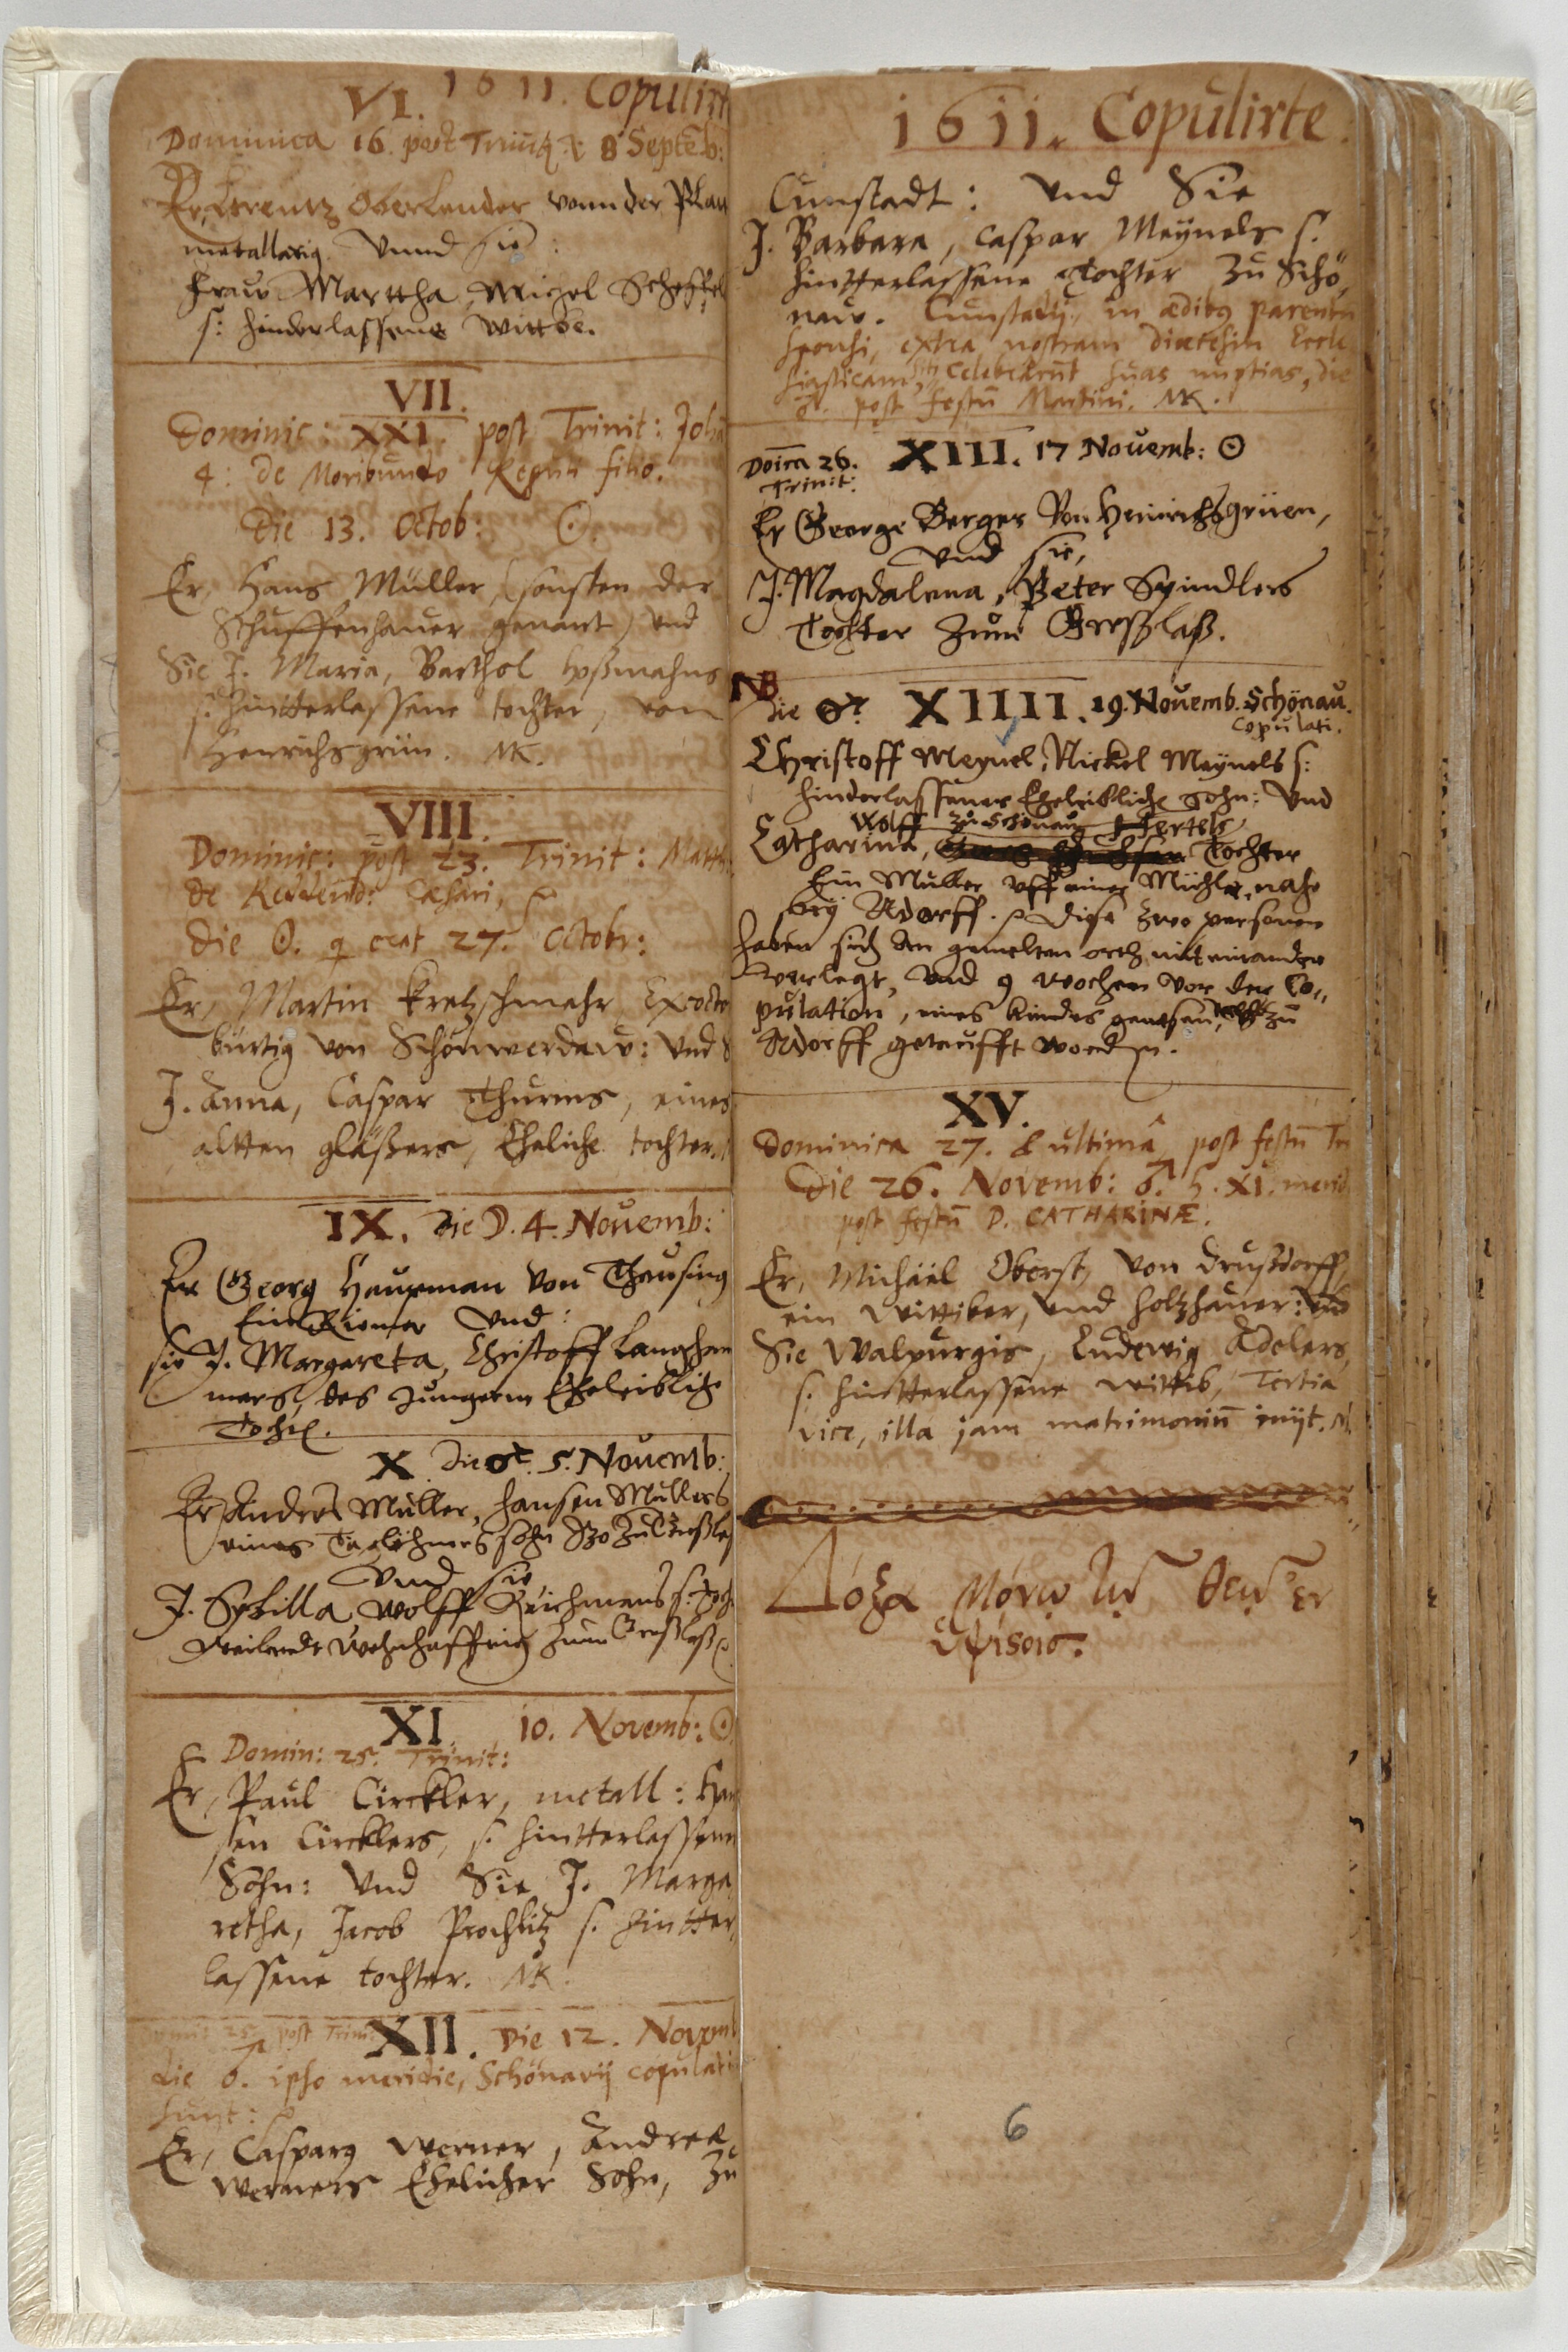 1611. Copulirt
VI.
Dominica 16. post Trinit. 8 Septeb:
Er, Lorentz Oberlender vonn der Plan
metallarig. Vnnd sie:
Fraw Marttha, Michel Scheffel
s: hinderlassene Wittbe.
VII.
Dominic: XXI. post Trinit: Joha
4: de Moribundo Reguli filio.
Die 13. Octob: ☉.
Er, Hans Müller, (sonsten der
Schuffenhauer genant) vnd
Sie J. Maria, Barthol Hoßmahns
s. hintterlassene tochter, von
Henrichsgrün. MK.
VIII.
Dominic: post 23. Trinit: Matth
de Reddend: Cæsari,
die ☉. q erat 27. Octobr:
Er, Martin Kretzschmehr,
burtig von Schönwerdaw: Vnd S
J. Anna, Caspar Thurms, eines
altten gläßers, Eheliche tochter.
IX. Die ☽. 4. Nouemb:
Er Georg Haupman von Thausing
Ein Riemer Vnd:
sie J. Margareta, Christoff Langham
mers, des Jungern Eheleibliche
Tocht.
X. Die ♂. 5. Nouemb:
Er Anders Müller, Hansen Müllers
eines Taglöhners sohn Bzo zu Greßlas
Vnd sie
J. Sybilla Wolff Reichmans s. Toch.
Weilandt Wohnhafftig zum Greßlaß.
XI. 10. Novemb: ☉
Domin: 25. Trinit:
Er, Paul Circkler, metall: Han
sen Circklers, s. hintterlassene
Sohn: Vnd Sie J. Marga
retha, Jacob Prochlitz s. hintter,
lassene tochter. MK.
Domi: 25. post Trini: XII. Die 12. Novemb
die ♂. ipso meridie, Schönavij copulati
sunt:
Er, Casparg Werner, Andreæ
Werners Ehelicher Sohn, Zu
1611. Copulirte.
Cunstadt: Vnd Sie
J. Barbara, Caspar Meÿnels s.
hintterlassene Tochter Zu Schö,
naw. Cunstadij, in ædibg parentu
sponsi, extra nostram diœcesin Eccle
siasticam, celebrarut suas nuptias, die
♂. post festu Martini. MK.
Doica 26. XIII. 17 Nouemb: ☉
Trinit:
Er George Berger Von Heinrichsgrüen,
Vnd sie,
J. Magdalena, Peter Spindlers
Tochter Zum Greßlaß.
NB
Die ♂. XIIII. 19. Nouemb. Schönau.
Copulati.
Christoff Meynel, Nickel Meÿnels s:
hinderlassener Eheleibliche sohn: Vnd
Wolff zu Schönau Hertels
Catharina, Tochter
Ein Müller vff einer Mühle, nahe
bey Adorff. Diese zwo personen
haben sich an gemelten orth mit einander
verlegt, Vnd 9 wochen vor der Co,,
pulation, eines Kindes genesen, zu
Adorff getaufft worden.
XV.
Dominica 27. & ultimâ post festu Tri
Die 26. Novemb: ♂. h. XI. merid.
post festu D. CATHARINÆ.
Er, Michäel Oberst, von Drußdorff,
ein Wittiber, Vnd Holtzhauer: Vnd
Sie Walpurgis, Ludewig Adelars,
s. hintterlassene Wittib, Tertia
vice, illa jam matrimoniu inijt. M
Δόξα Μόνῳ τῷ θεῷ ἐν
ὑψίσοις.
6